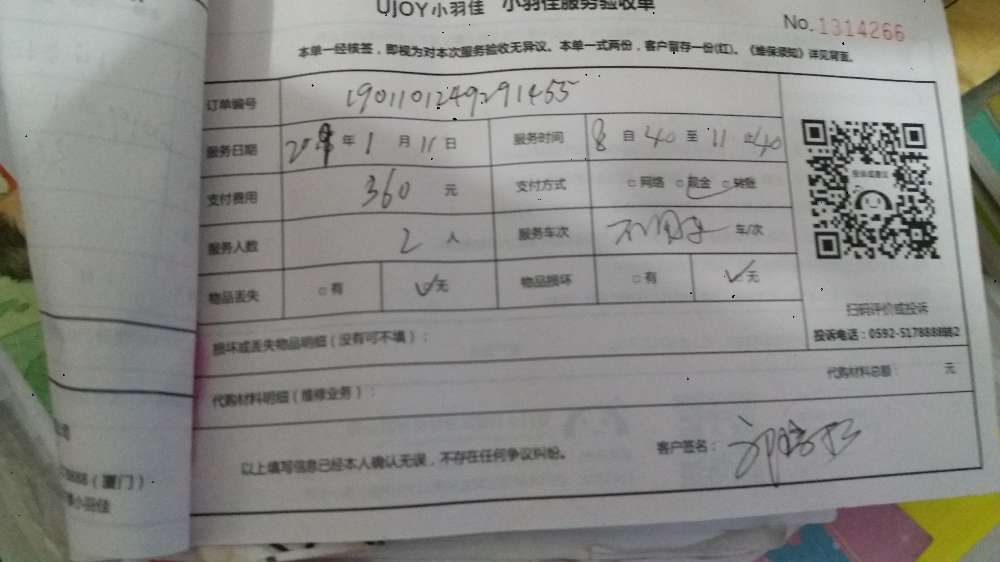 UJOY小羽佳 小羽佳服务验收单
No. 1314266
本单一经核签，即视为对本次服务验收无异议。本单一式两份，客户留存一份(红)。《维保须知》详见背面。
订单编号 1901101249291455
服务日期 年 1 月 11 日 服务时间 8 自 40 至 11 止 40
支付费用 360 元 支付方式 □网络 □现金 □转账
服务人数 2 人 服务车次 车/次
物品丢失 □有 ✓无 物品损坏 □有 ✓无
扫码评价或投诉
投诉电话：0592-5178888转2
损坏或丢失物品明细（没有可不填）：
代购材料明细（维修业务）： 代购材料总额： 元
以上填写信息已经本人确认无误，不存在任何争议纠纷。 客户签名：
（厦门）
小羽佳